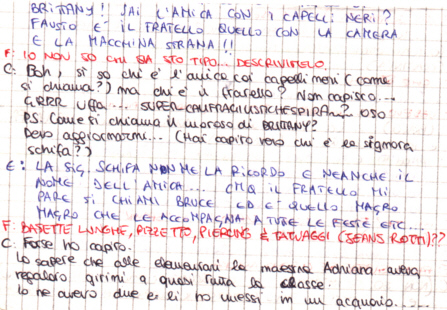 BRITTANY! SAI L'AMICA CON I CAPELLI NERI?
FAUSTO E' IL FRATELLO QUELLO CON LA CAMERA
E LA MACCHINA STRANA!!
F: IO NON SO CHI SIA STO TIPO... DESCRIVITELO.
C: Boh, si so chi è l'amica coi capelli neri (come
si chiama?) ma chi è il fratello? Non capisco...
GRRR uffa... SUPERCALIFRAGILISTICHESPIRA... OSO
P.S. Come si chiama il moroso di BRITTANY?
Devo aggiornarmi... (Hai capito vero chi è la signora
schifa?)
E: LA SIG. SCHIFA NON ME LA RICORDO E NEANCHE IL
NOME DELL'AMICA... CMQ IL FRATELLO MI
PARE SI CHIAMI BRUCE ED E' QUELLO MAGRO
MAGRO CHE LE ACCOMPAGNA A TUTE LE FESTE ETC...
F: BASETTE LUNGHE, PIZZETTO, PIERCING E TATUAGGI (JEANS ROTTI)??
C: Forse ho capito.
Lo sapere che alle elementari la maestra Adriana aveva
regalato girini a quasi tutta la classe.
Io ne avevo due e li ho messi in un acquario......